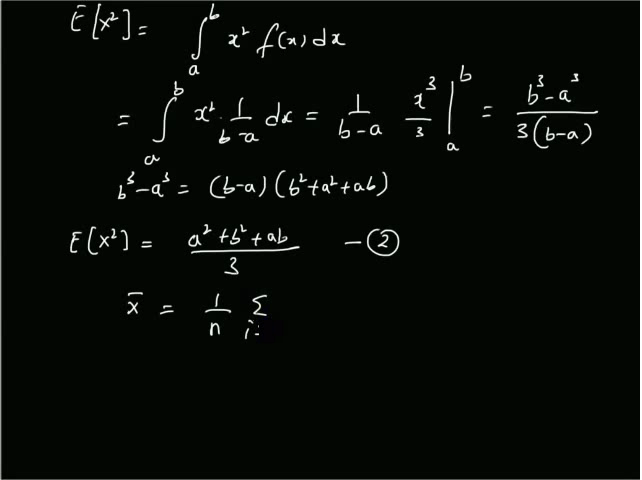 E[x²] = ∫ₐᵇ x² f(x) dx
= ∫ₐᵇ x² · 1/(b-a) dx = 1/(b-a) x³/3 |ₐᵇ = (b³-a³)/(3(b-a))
b³-a³ = (b-a)(b²+a²+ab)
E[x²] = (a²+b²+ab)/3 — ②
x̄ = 1/n Σ i=